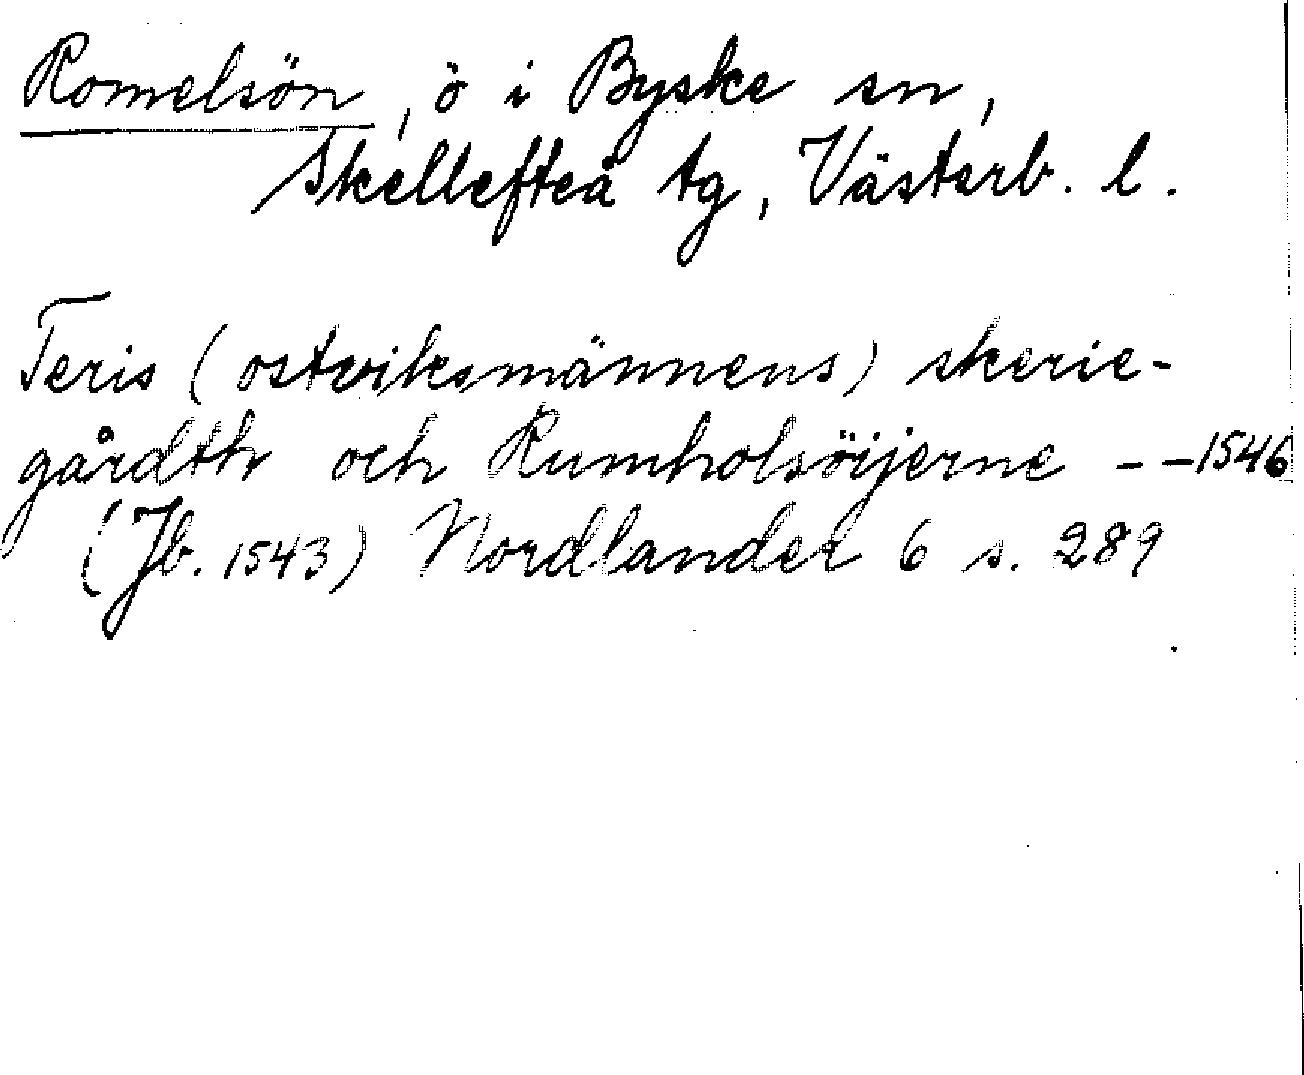 Romelsön, ö i Byske sn,
Skellefteå tg, Västerb. l.
Teris (ostviksmännens) skerie-
gårdth och Rumholsöijerne - - 1546
(Jb. 1543) Nordlander 6 s. 289